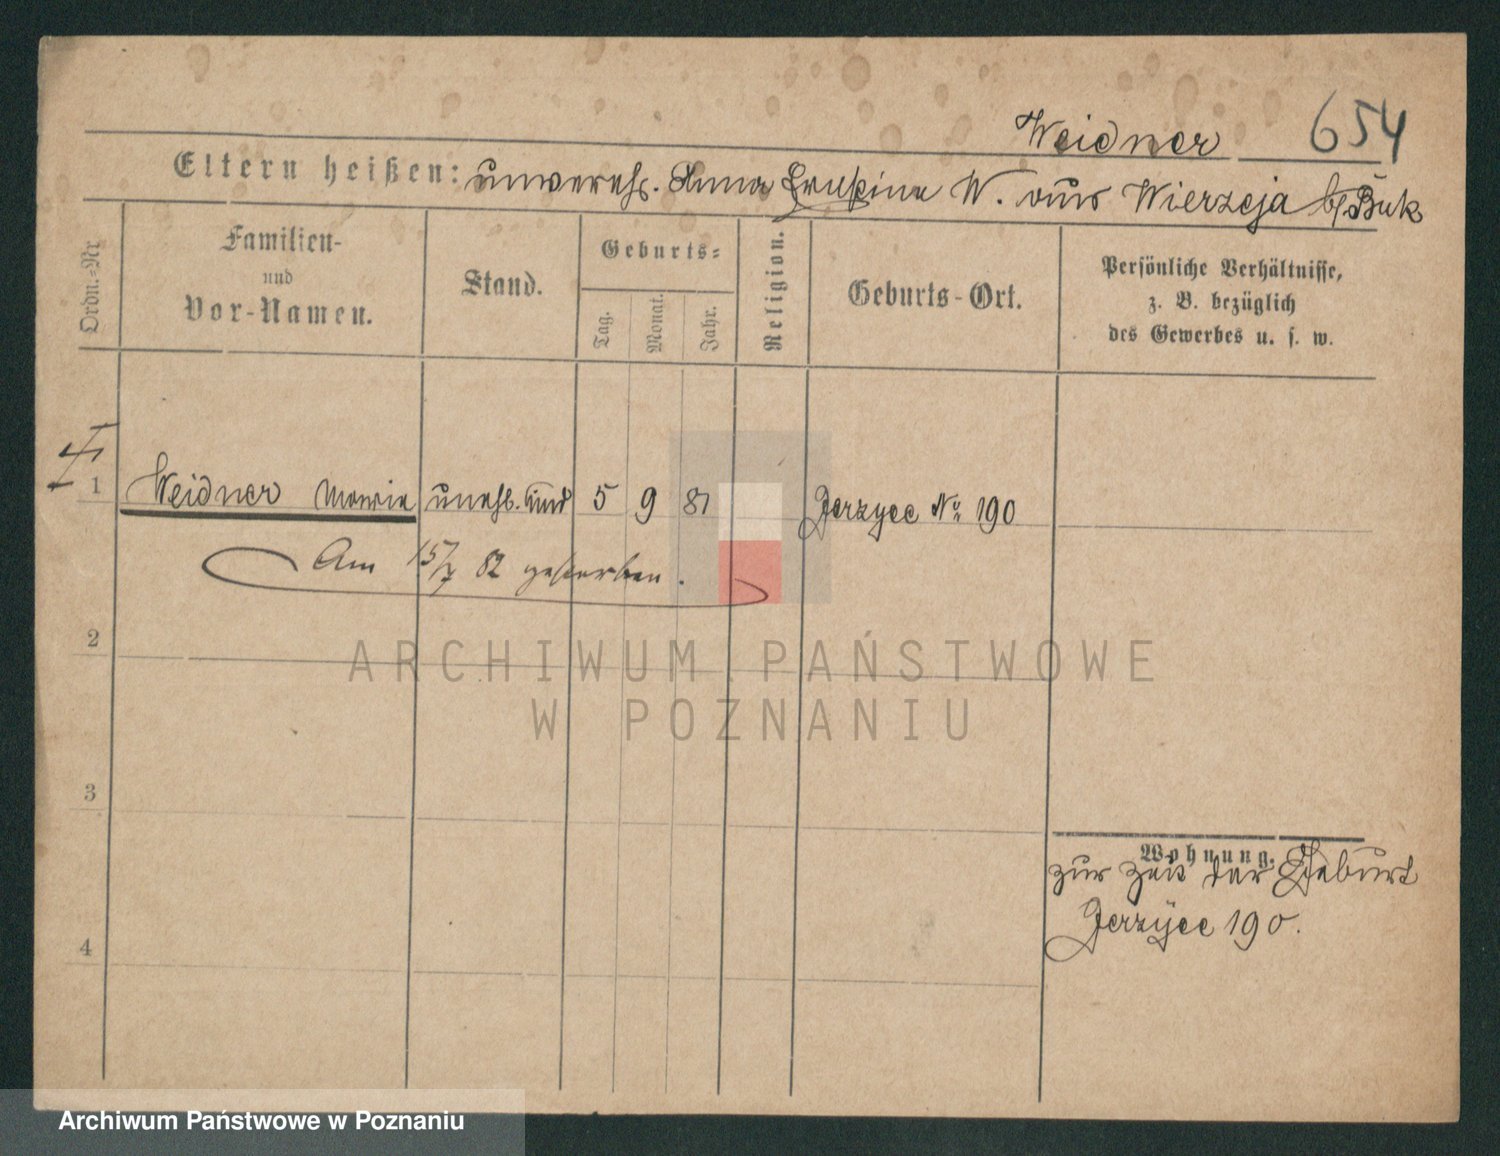 Weidner 654
Eltern heißen: unverehl. Anna W. aus Wierzeja b/Buk
Ordn.-Nr
Familien-
und
Vor-Namen.
Stand.
Geburts-
Tag.
Monat.
Jahr.
Religion.
Geburts-Ort.
Persönliche Verhältnisse,
z. B. bezüglich
des Gewerbes u. s. w.
1 Weidner Marie unehl. Kind 5 9 81 Jerzyce No 190
Am 15/7 82 gestorben.
2
ARCHIWUM PAŃSTWOWE
W POZNANIU
3
Wohnung.
zur Zeit der Geburt
Jerzyce 190.
4
Archiwum Państwowe w Poznaniu